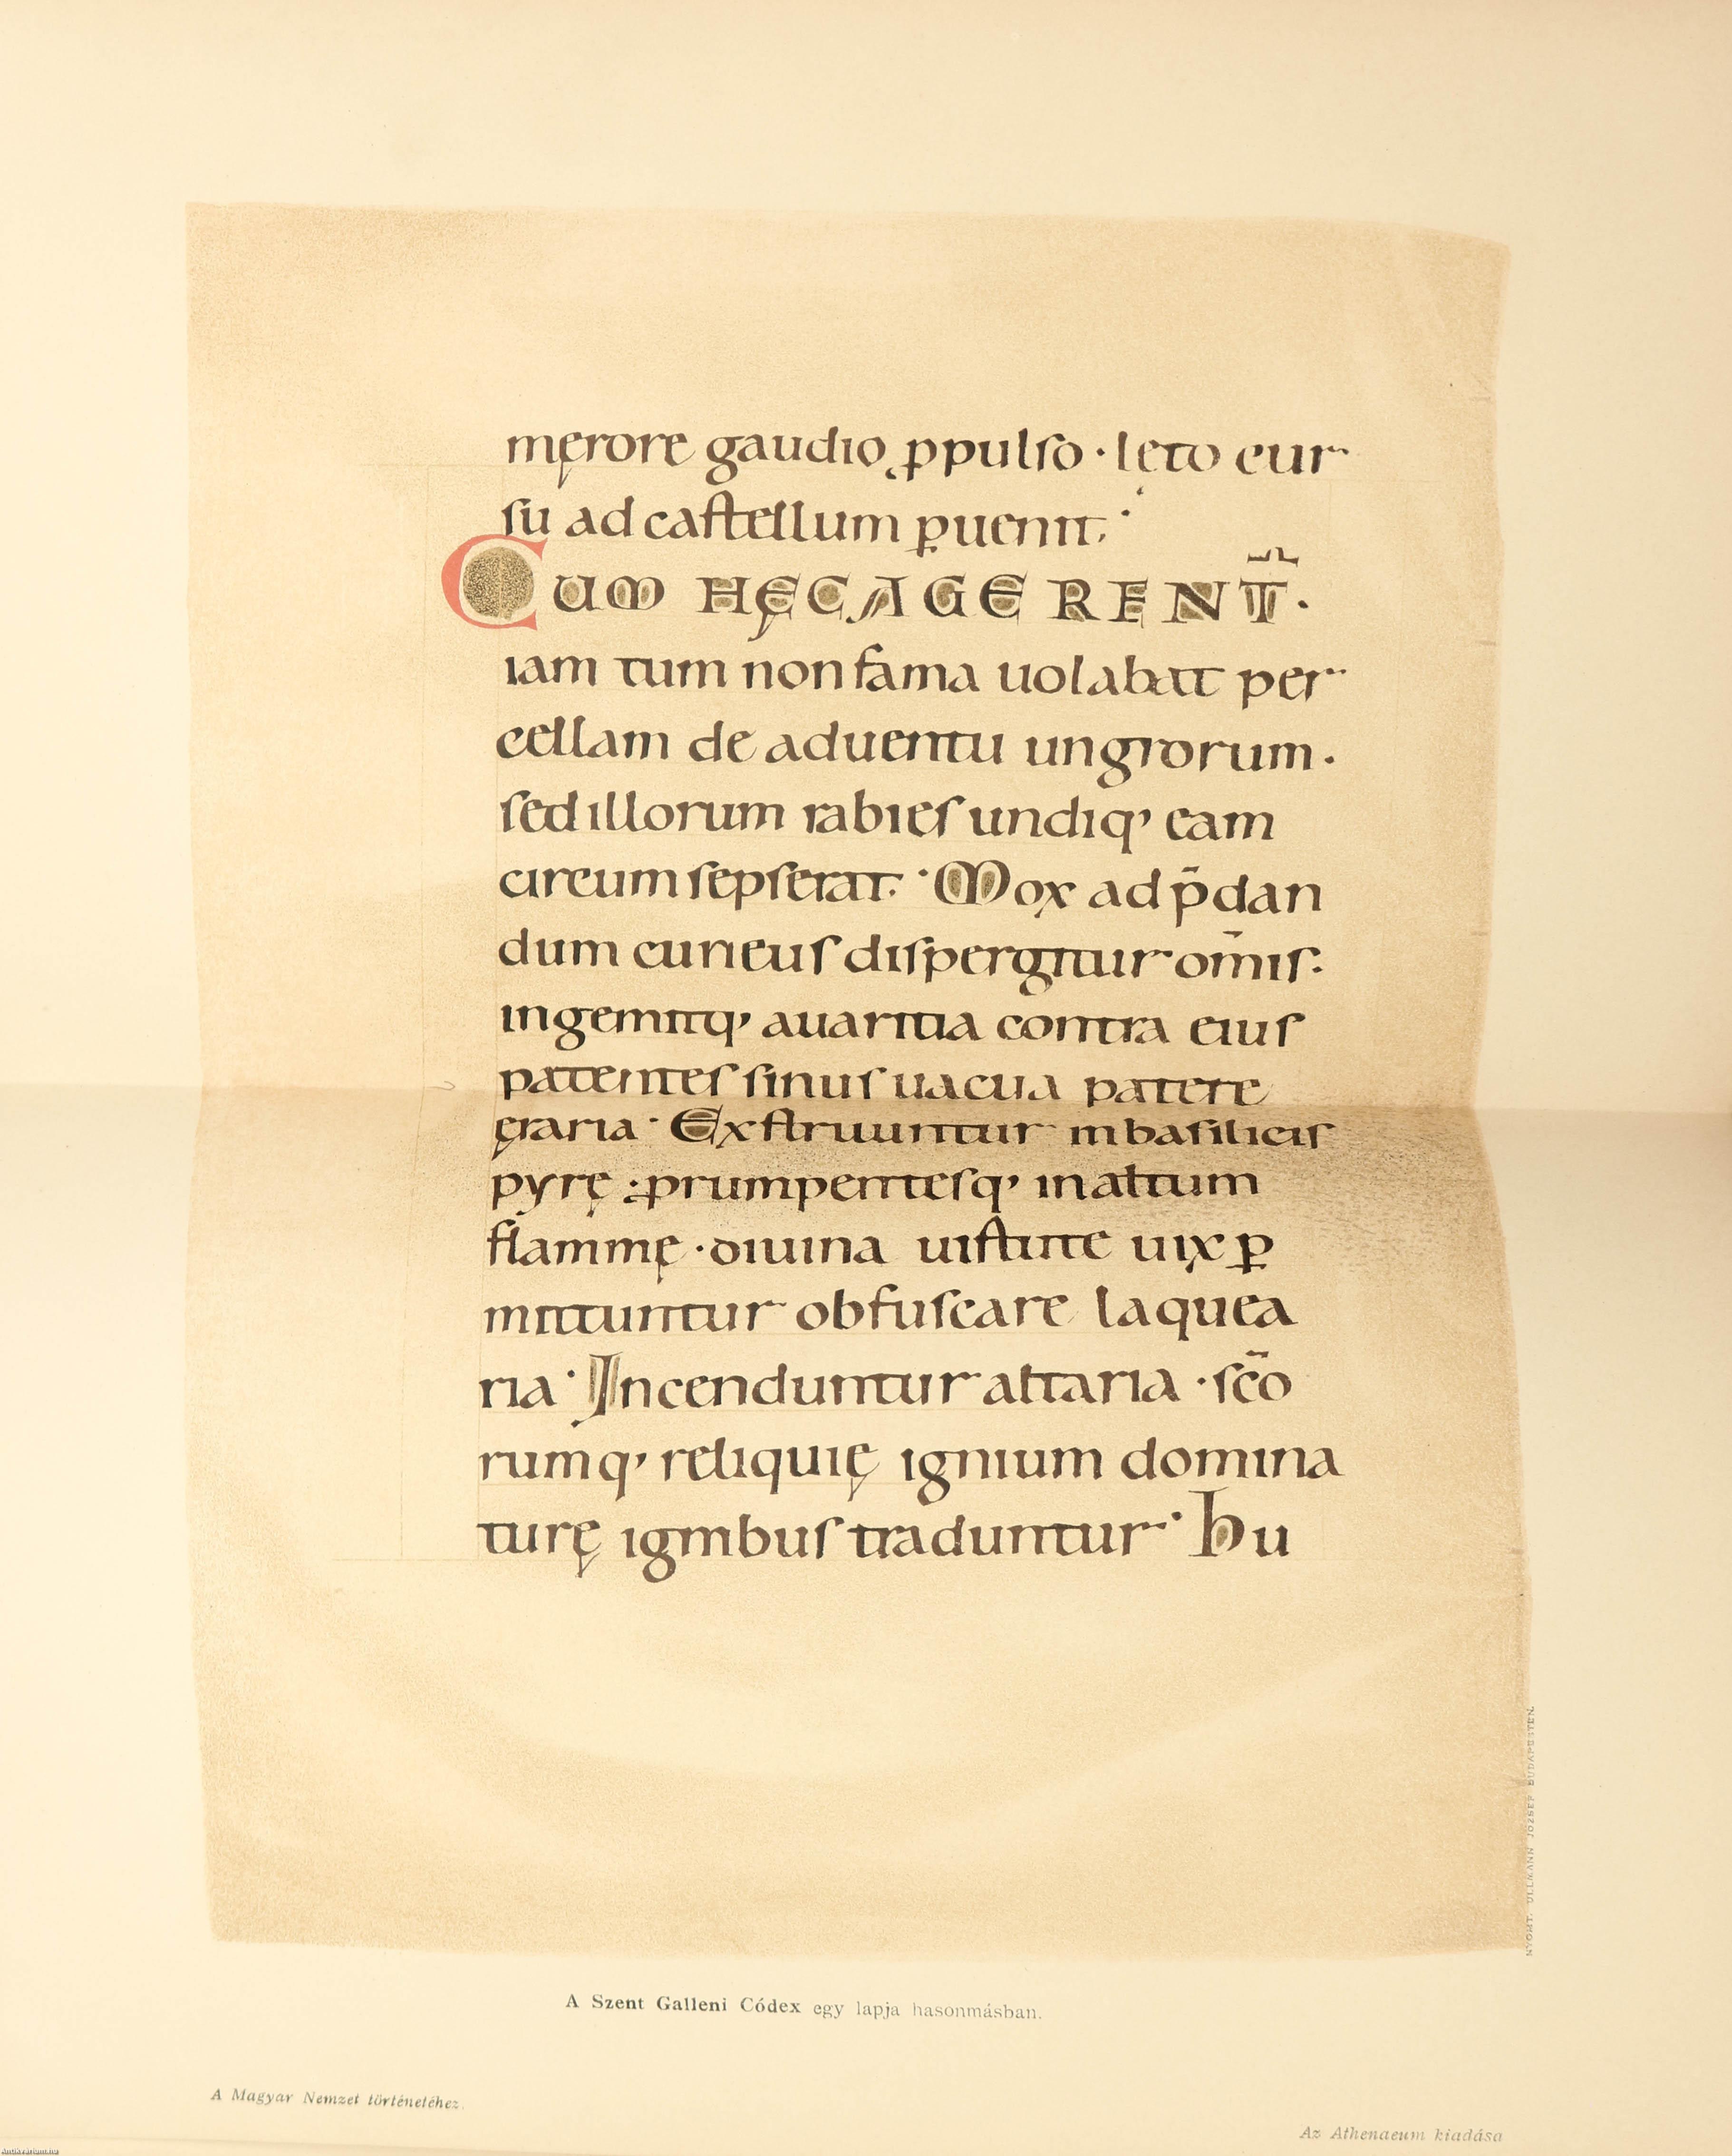 męrore gaudio ꝓpulso · lęto cur
su ad castellum ꝑuenit;·
CUM HĘC AGERENT̄ᷣ.
iam tum non fama uolabat per
cellam de aduentu ungrorum.
sed illorum rabies undiq' eam
circum sepserat. · Mox ad p̄dan
dum cuneus dispergitur om̄is:
ingemitq' auaritia contra eius
patentes sinus uacua patere
ęraria · Exstruuntur in basilicis
pyrę : ꝓrumpentesq' in altum
flammę · diuina uirtute uix ꝑ
mittuntur obfuscare laquea
ria · Incenduntur altaria · sc̄o
rumq' reliquię ignium domina
turę ignibus traduntur · hu
NYOMT. ULLMANN JÓZSEF BUDAPESTEN.
A Szent Galleni Códex egy lapja hasonmásban.
A Magyar Nemzet történetéhez.
Az Athenaeum kiadása
Antikvarium.hu